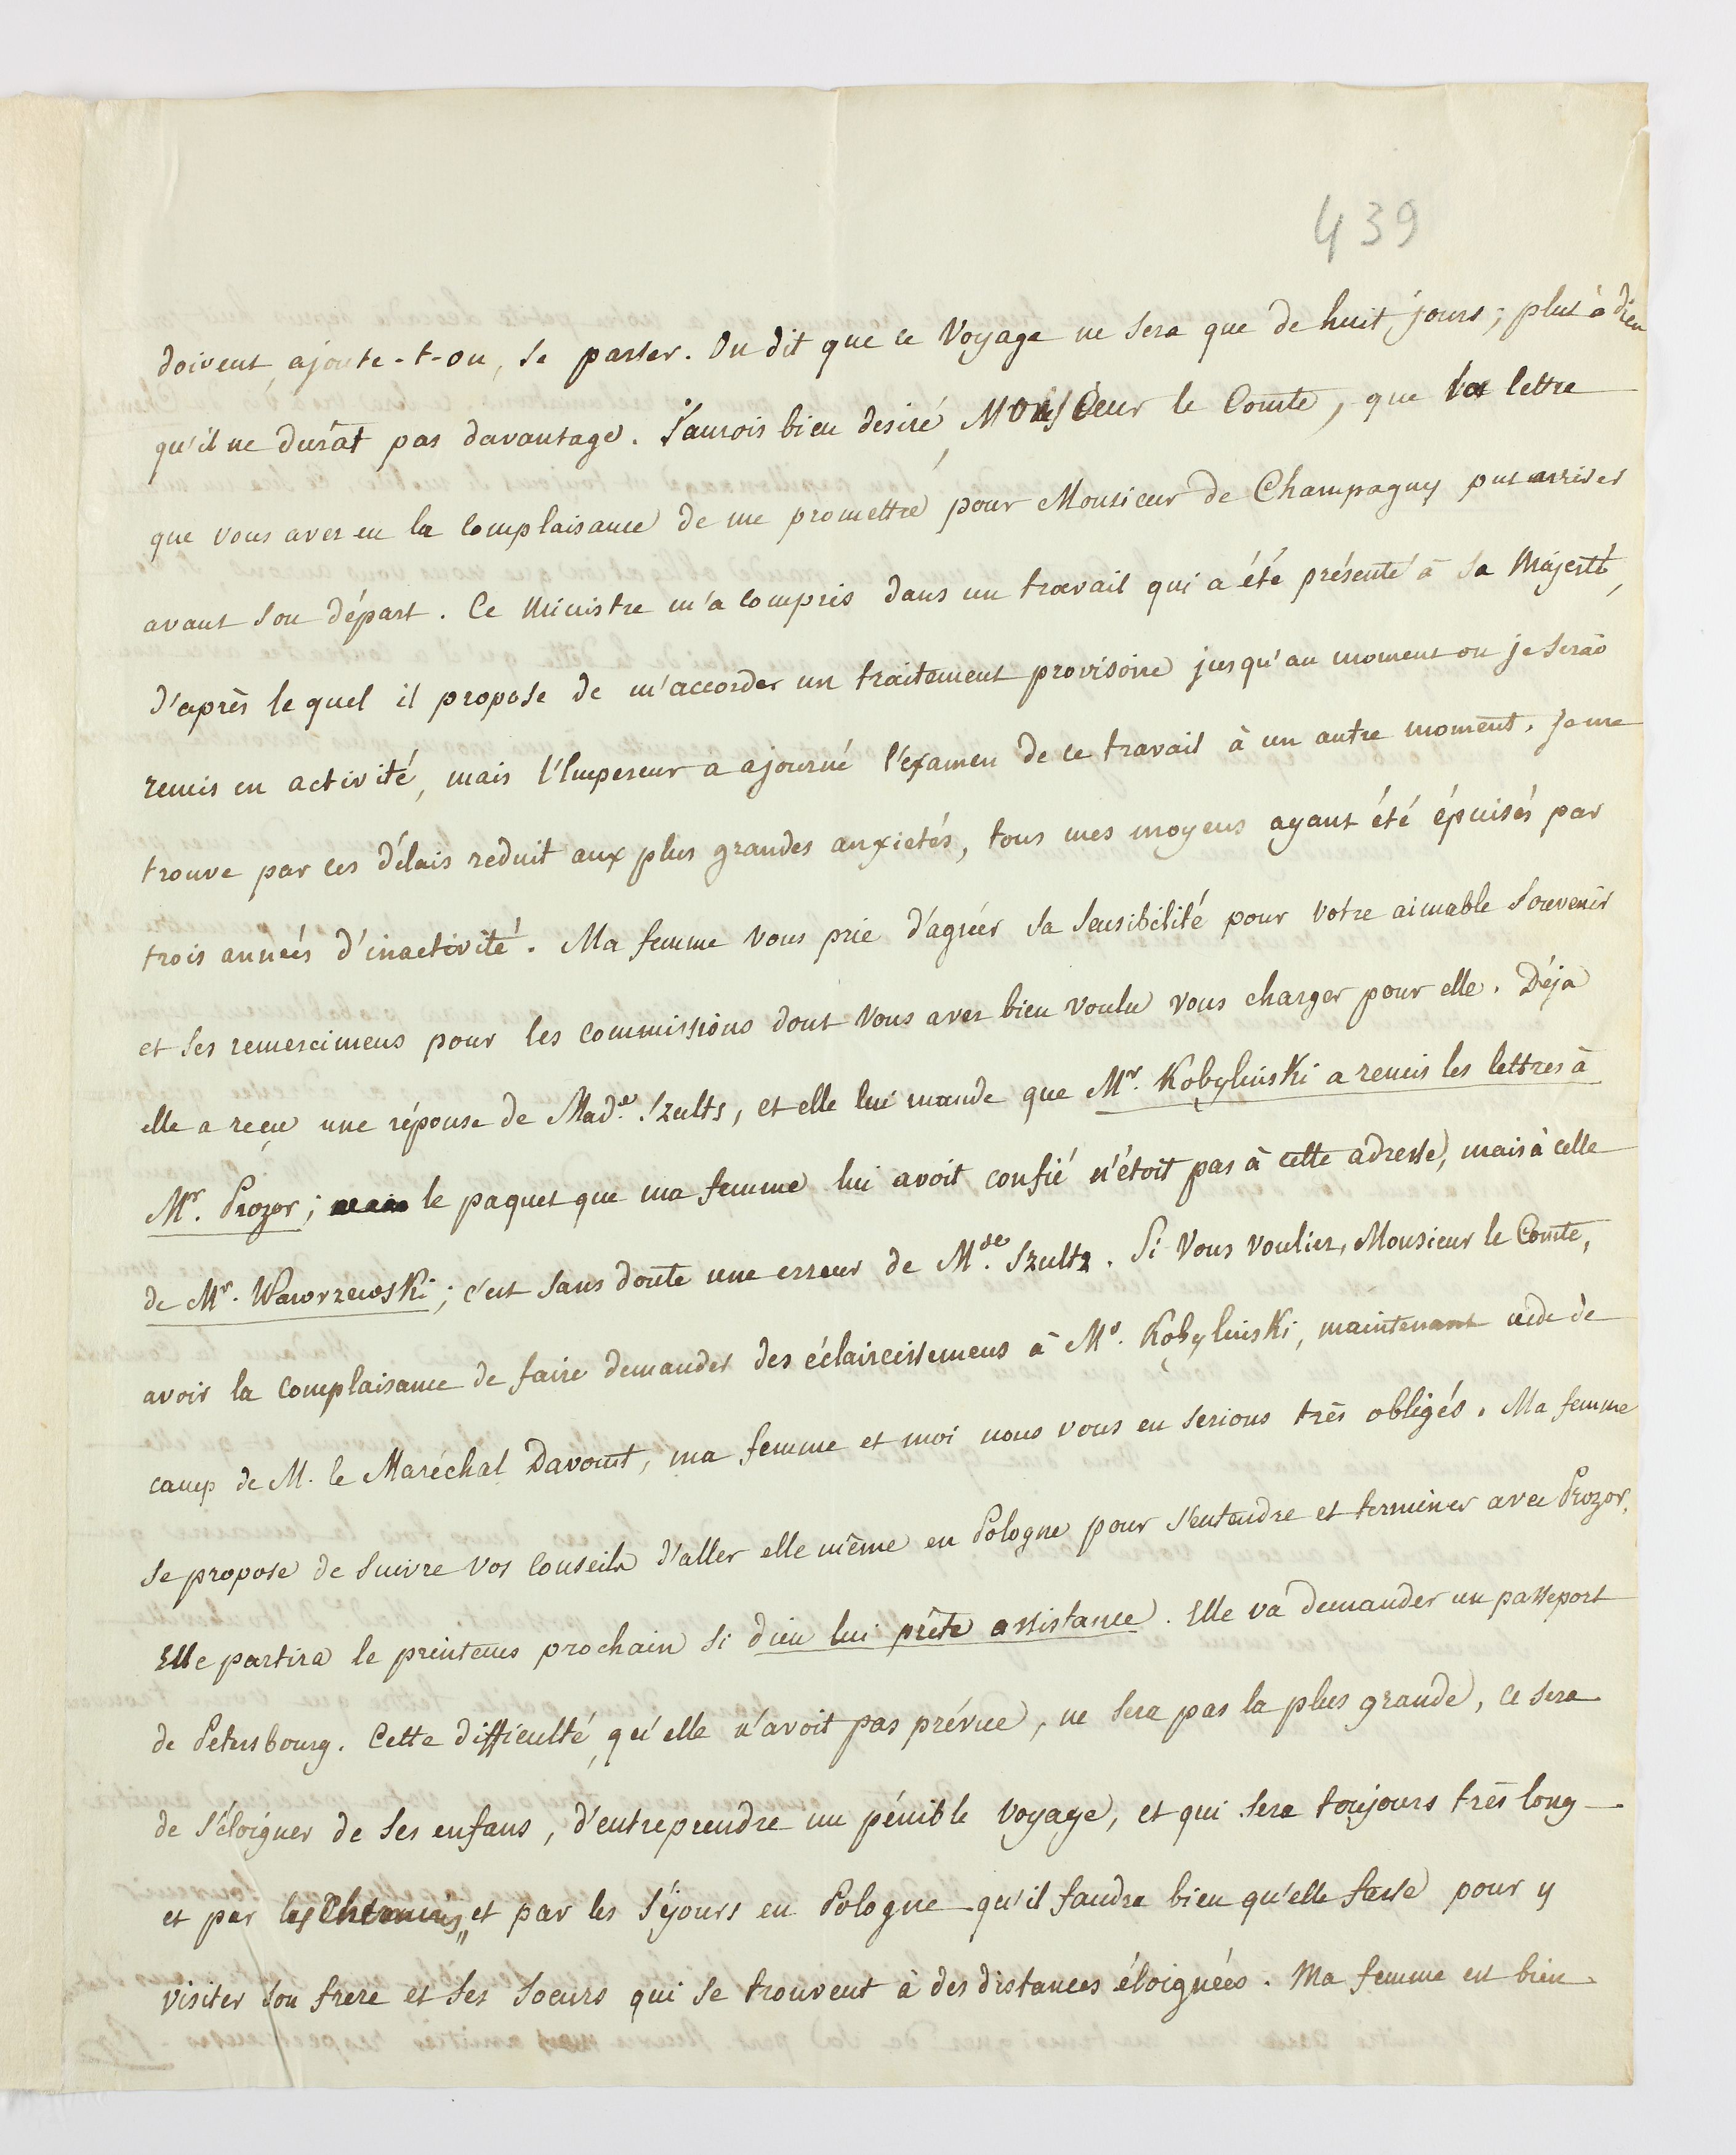 439
doivent, ajoute-t-on, se passer. On dit que ce Voyage ne sera que de huit jours; plut à dieu
qu'il ne durât pas davantage. J'aurois bien desiré, Monsieur le Comte, que la lettre
que vous avez eu la complaisance de me promettre pour Monsieur de Champagny put arriver
avant son départ. Ce Ministre m'a compris dans un travail qui a été présenté à Sa Majesté,
d'après lequel il propose de m'accorder un traitement provisoire jusqu'au moment ou je serao
remis en activité, mais l'Empereur a ajourné l'examen de ce travail à un autre moment. Je me
trouve par ces délais reduit aux plus grandes anxietés, tous mes moyens ayant été épuisés par
trois annéés d'inactivité. Ma femme vous prie d'agréer sa sensibilité pour votre aimable souvenir
et ses remercimens pour les commissions dont vous avez bien voulu vous charger pour elle. Déja
elle a reçu une réponse de Mad.e Szults, et elle lui mande que Mr. Kobylinski a remis les lettres à
Mr. Prozor; le paquet que ma femme lui avoit confié n'étoit pas à cette adresse, mais à celle
de Mr. Wawrzewski; c'est sans doute une erreur de M.de Szultz. Si vous vouliez, Monsieur le Comte,
avoir la complaisance de faire demander des éclaircissemens à Mr. Kobylinski, maintenant aide de
camp de M. le Maréchal Davoust, ma femme et moi nous vous en serions très obligés. Ma femme
se propose de suivre vos conseils d'aller elle même en Pologne pour s'entendre et terminer avec Prozor.
Elle partira le printems prochain si dieu lui prête assistance. Elle va demander un passeport
de Petersbourg. Cette difficulté, qu'elle n'avoit pas prévue, ne sera pas la plus grande, ce sera
de s'éloigner de ses enfans, d'entreprendre un pénible voyage, et qui sera toujours très long
et par les Chemins, et par les séjours en Pologne qu'il faudra bien qu'elle fasse pour y
visiter son frere et ses soeurs qui se trouvent à des distances éloignées. Ma femme est bien